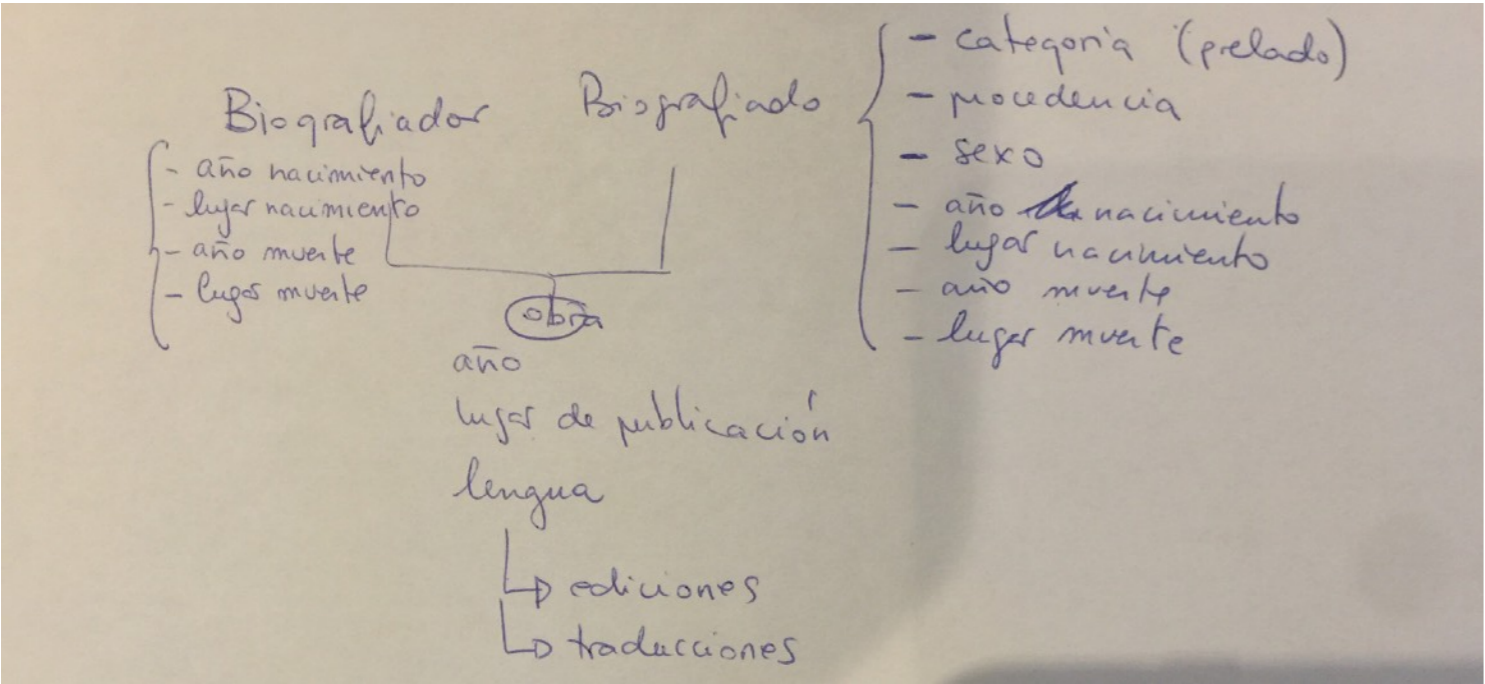 Biografiador
- año nacimiento
- lugar nacimiento
- año muerte
- lugar muerte
Biografiado
- categoría (prelado)
- procedencia
- sexo
- año nacimiento
- lugar nacimiento
- año muerte
- lugar muerte
obra
año
lugar de publicación
lengua
ediciones
traducciones